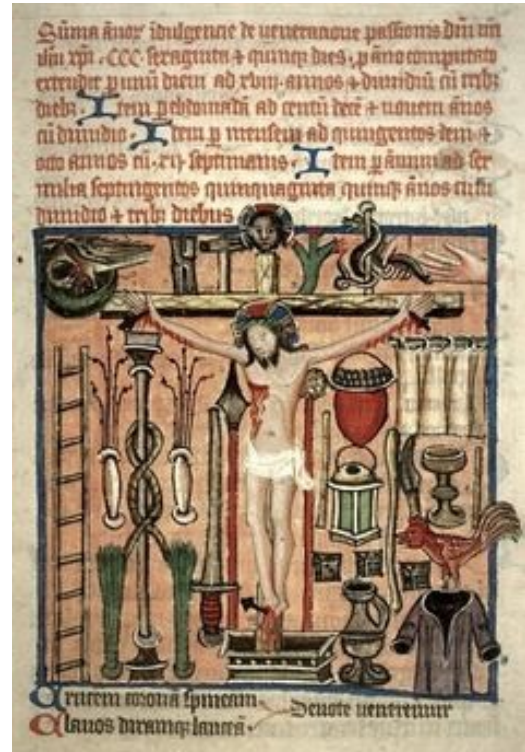 Sūma ānoꝝ īdulgencie de veneracione passionis dm̄ nr̄i
ihu xpi · CCC · sexaginta ⁊ quinqꝫ dies · p āno computato
extendit p unū diem ad xviij · annos ⁊ dimidiū cū tribꝫ
diebꝫ · Item p ebdomadā ad centū decē ⁊ nouem ānos
cū dimidio · Item p mensem ad quingentos decem ⁊
octo annos cū · xij · septimanis · Item p Annū ad sex
milia septingentos quinquaginta quinqꝫ ānos cum
dimidio ⁊ tribꝫ diebus
Crucem coronā spineam
Clauos diramqꝫ lanceā ·
Deuote veneremur